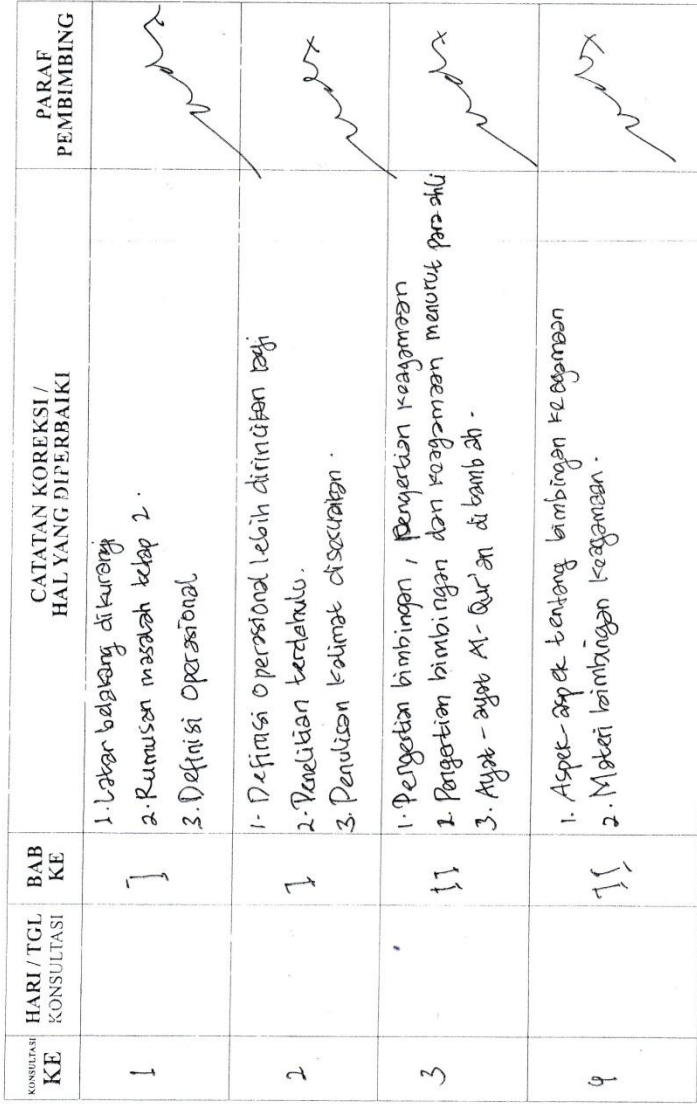 KONSULTASI KE
HARI / TGL KONSULTASI
BAB KE
CATATAN KOREKSI / HAL YANG DIPERBAIKI
PARAF PEMBIMBING
1
I
1. Latar belakang dikurangi
2. Rumusan masalah tetap 2.
3. Definisi Operasional
2
I
1. Definisi Operasional lebih dirincikan lagi
2. Penelitian terdahulu.
3. Penulisan kalimat disesuaikan.
3
II
1. Pengertian bimbingan, pengertian keagamaan
2. Pengertian bimbingan dan keagamaan menurut para ahli
3. Ayat-ayat Al-Qur'an ditambah.
4
II
1. Aspek-aspek tentang bimbingan keagamaan
2. Materi bimbingan keagamaan.